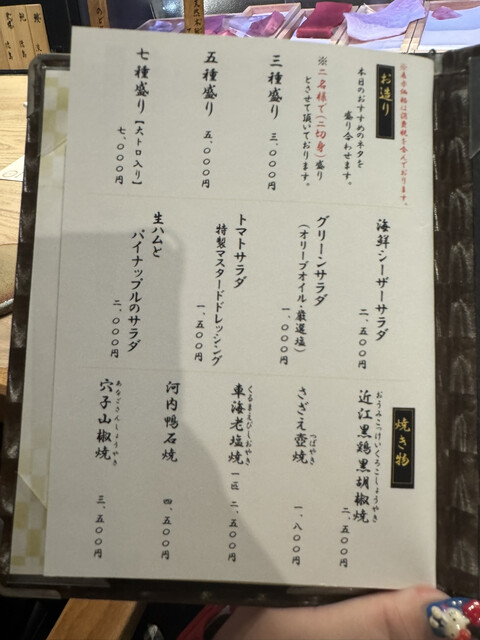 ※表示価格は消費税を含んでおります。
お造り
本日のおすすめのネタを
盛り合わせます。
※二名様で(二切身)盛り
とさせて頂いております。
三種盛り
三、〇〇〇円
五種盛り
五、〇〇〇円
七種盛り【大トロ入り】
七、〇〇〇円
海鮮シーザーサラダ
二、五〇〇円
グリーンサラダ
(オリーブオイル・厳選塩)
一、〇〇〇円
トマトサラダ
特製マスタードドレッシング
一、五〇〇円
生ハムと
パイナップルのサラダ
二、〇〇〇円
焼き物
おうみこっけいくろこしょうやき
近江黒鶏黒胡椒焼
二、五〇〇円
つぼやき
さざえ壺焼
一、八〇〇円
くるまえびしおやき
車海老塩焼
一匹 二、五〇〇円
河内鴨石焼
四、五〇〇円
あなごさんしょうやき
穴子山椒焼
三、五〇〇円